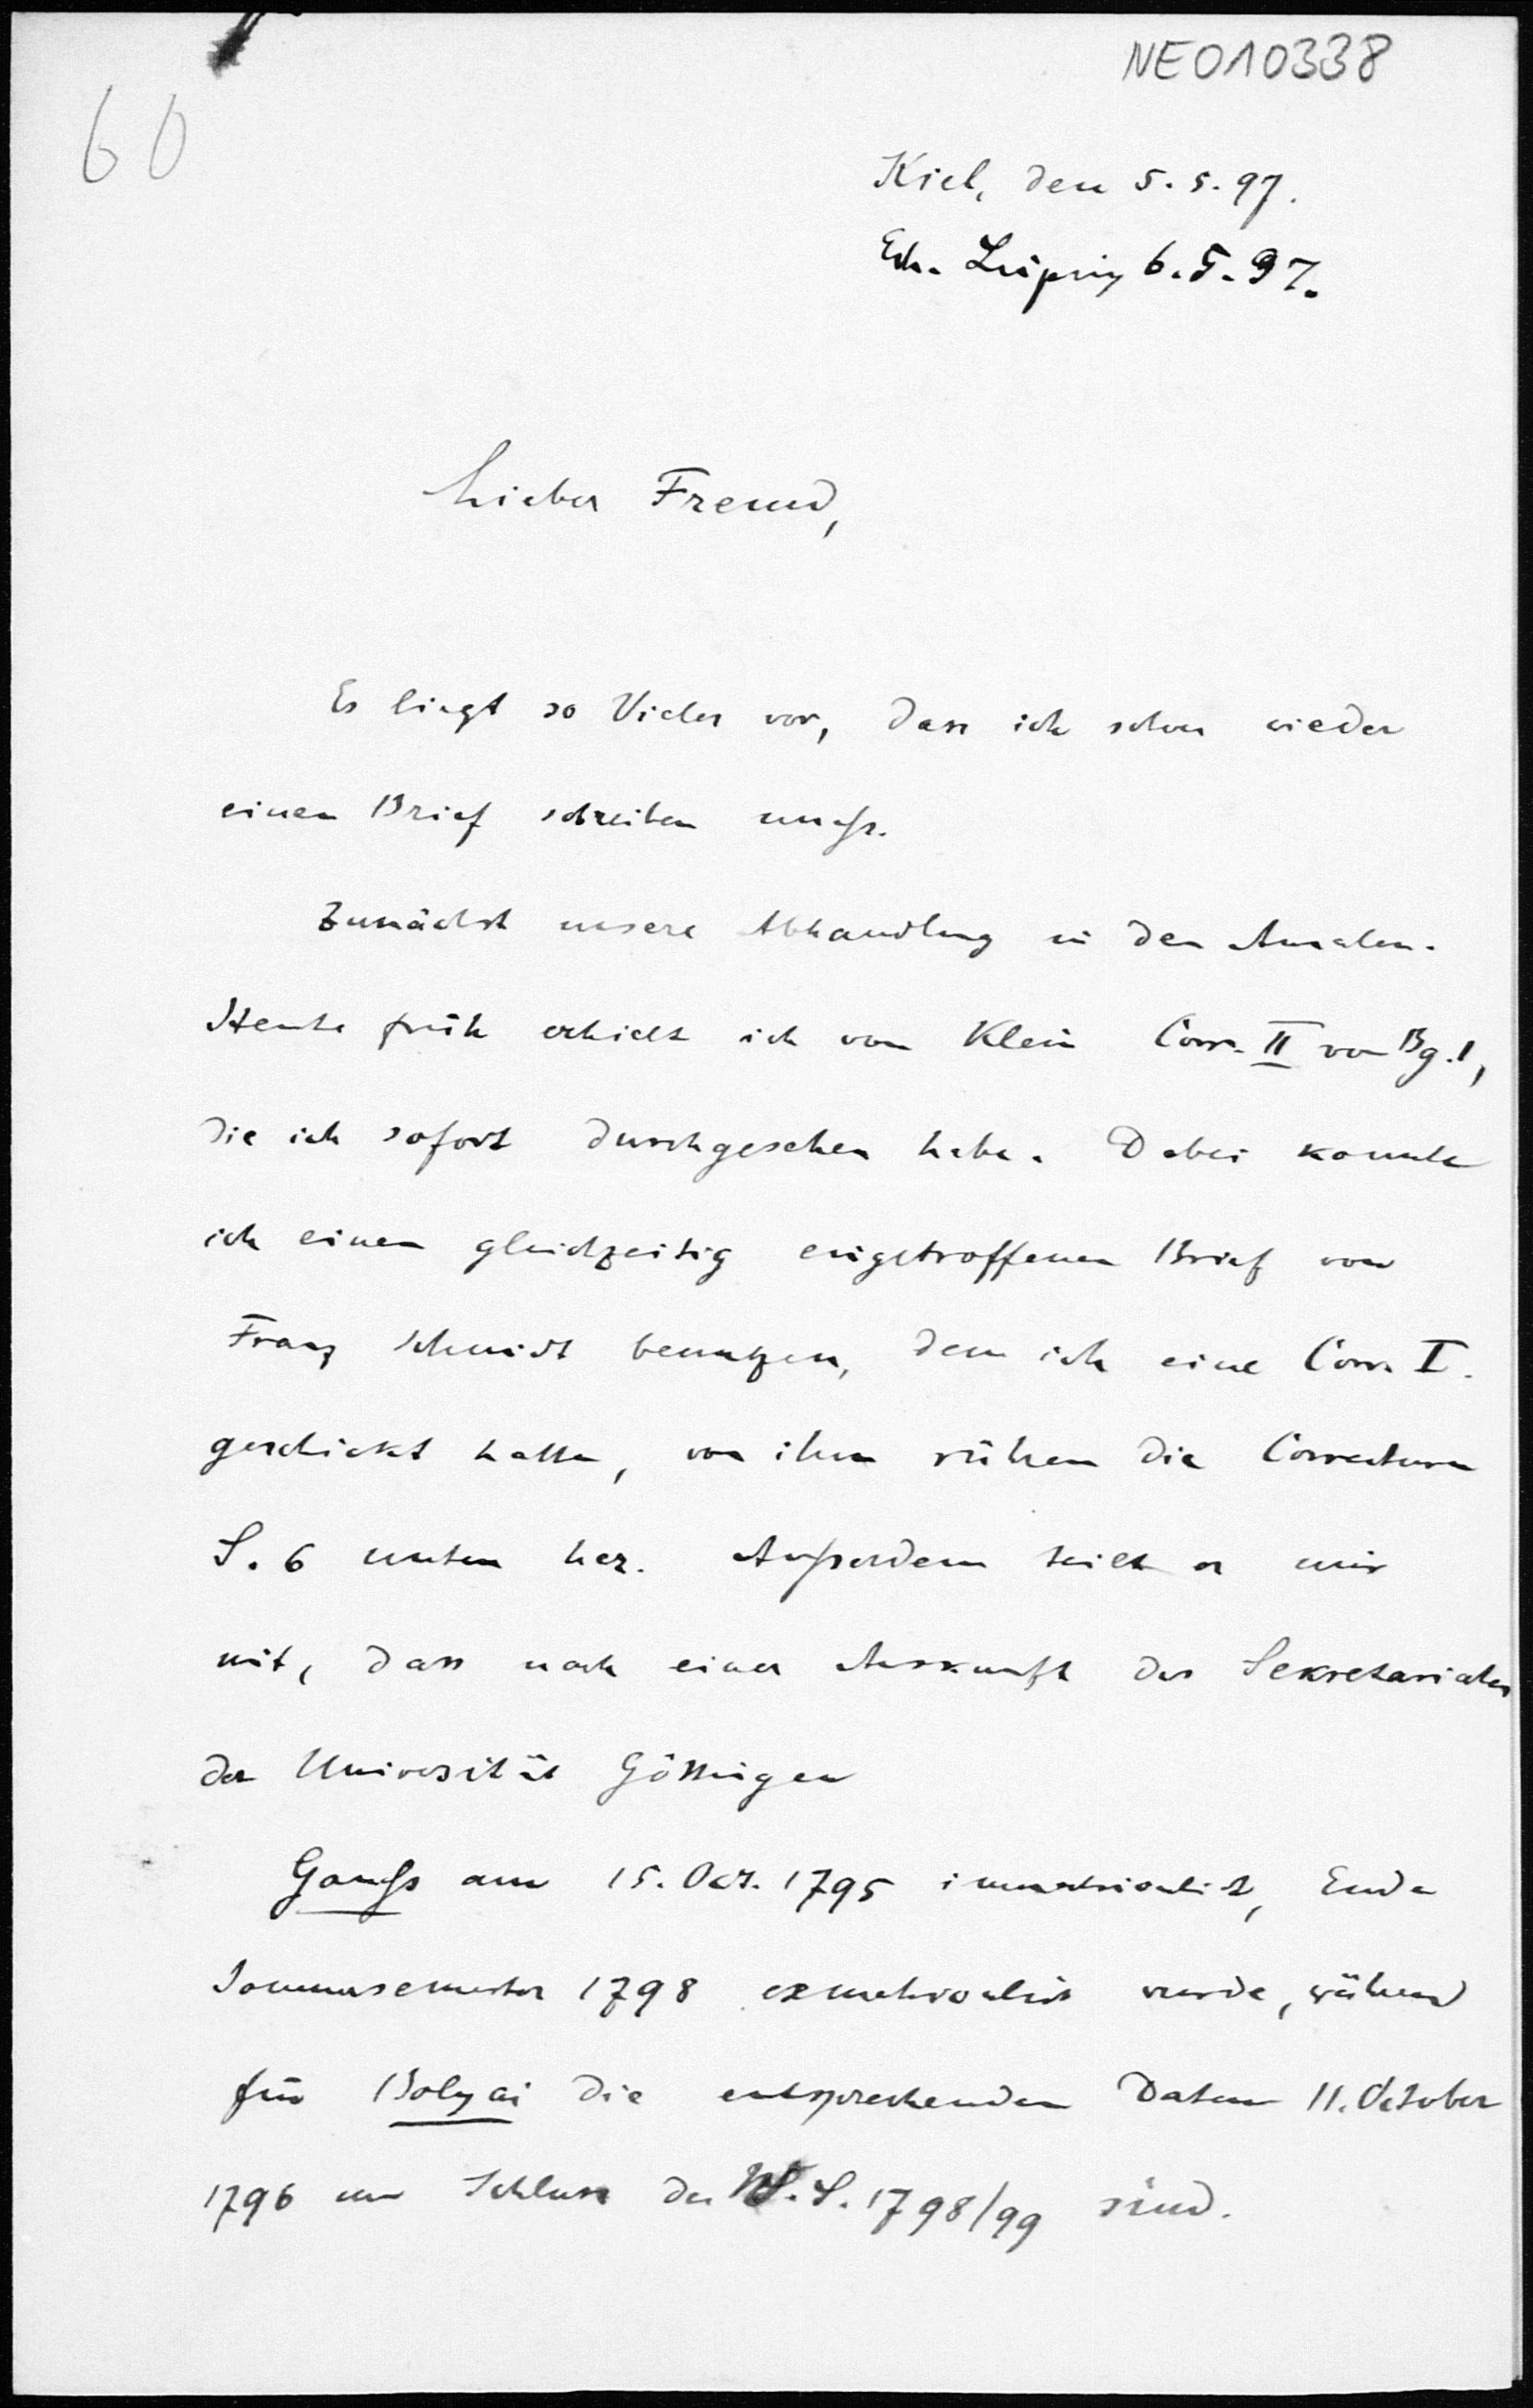 NEO10338
60
Kiel, den 5.5.97.
Erh. Leipzig 6.5.97.
Lieber Freund,
Es liegt so Vieles vor, dass ich schon wieder
einen Brief schreiben muſs.
Zunächst unsere Abhandlung in den Annalen.
Heute früh erhielt ich von Klein Corr. II von Bg. 1,
die ich sofort durchgesehen habe. Dabei konnte
ich einen gleichzeitig eingetroffenen Brief von
Franz Schmidt benutzen, dem ich eine Corr. I.
geschickt hatte, von ihm rühren die Correcturen
S. 6 unten her. Auſserdem teilt er mir
mit, dass nach einer Auskunft des Sekretariates
der Universität Göttingen
Gauſs am 15. Oct. 1795 immatriculirt, Ende
Sommersemester 1798 exmatriculirt wurde, während
für Bolyai die entsprechenden Daten 11. October
1796 und Schluss des W.S. 1798/99 sind.